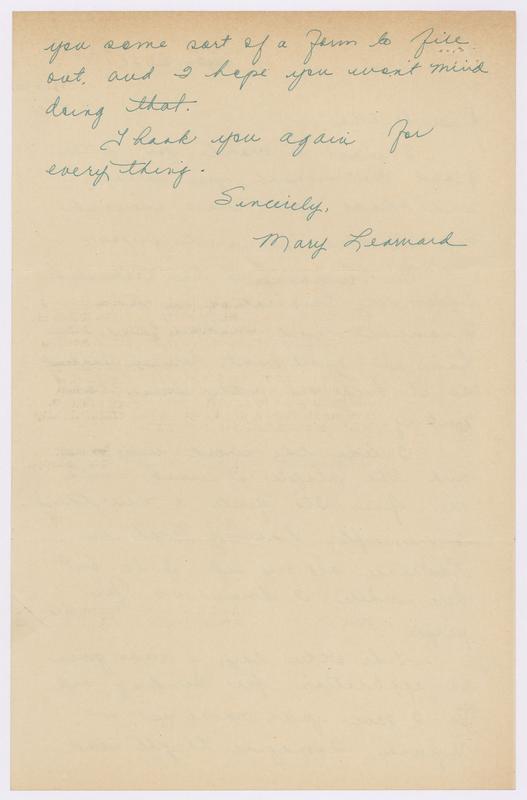 you some sort of a form to file
out, and I hope you won't mind
doing that.
Thank you again for
every thing.
Sincerely,
Mary Leonard